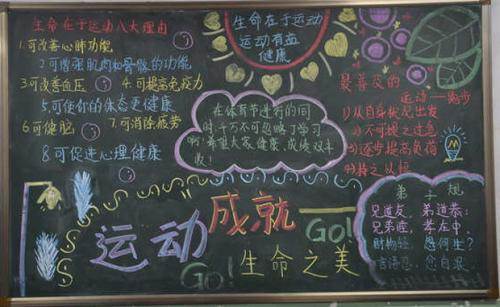 生命在于运动八大理由
1.可改善心肺功能
2.可增强肌肉和骨骼的功能
3可改善血压 4.可提高免疫力
5.可使你的体态更健康
6可健脑 7.可消除疲劳
8可促进心理健康
生命在于运动
运动有益
健康
最普及的
运动——跑步
1)从自身状况出发
2)不可提之过急
3)逐步提高负荷
4)持之以恒
在体育节进行的同
时,千万不可忽略了学习
啊!希望大家健康、成绩双丰
收!
弟子规
兄道友，弟道恭；
兄弟睦，孝在中，
财物轻，怨何生？
言语忍，忿自泯
运动成就——
Go! Go!
生命之美